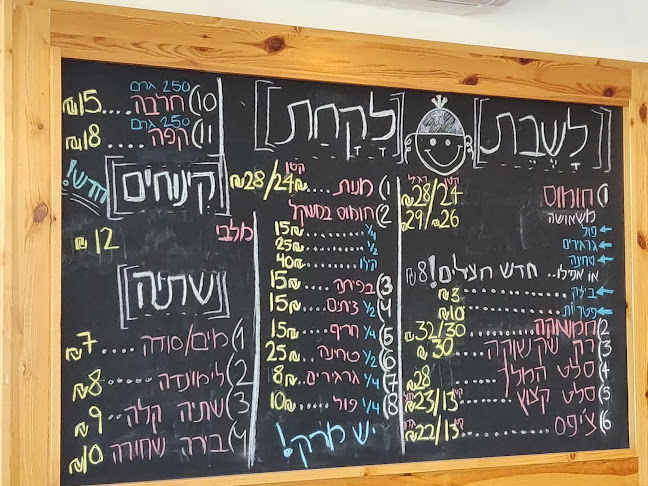 [לָשֶׁבֶת]
קטן רגיל
1) חומוס ₪28/24
משאושה ₪29 ₪26
← פול
← גרגירים
← טחינה
או אפילו.. חדש חצילים! ₪8
← ביצה ........ ₪3
← פטריות ........ ₪10
2) חמשוקה ₪32/30
3) רק שקשוקה ₪30
4) סלט המלך ..... ₪28
5) סלט קצוץ .... ₪23/13
6) צ'יפס ........ ₪22/13
[לָקַחַת]
קטן
1) מנות ..... ₪28/24
2) חומוס במשקל
1/4 ........ ₪15
1/2 ........ ₪25
קילו ........ ₪40
3) בפיתה ........ ₪15
4) 1/2 זיתים .... ₪15
5) 1/4 חריף .... ₪15
6) 1/2 טחינה .... ₪25
7) 1/4 גרגירים .. ₪8
8) 1/4 פול .... ₪10
יש מרק!
250 גרם
10) חלבה .... ₪15
250 גרם
11) קפה .... ₪18
[קינוחים]
חדש!
מלבי ₪12
[שתיה]
1) מים/סודה ..... ₪7
2) לימונדה ..... ₪8
3) שתיה קלה .. ₪9
4) בירה שחורה ₪10